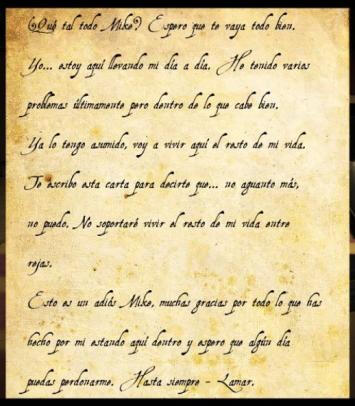 ¿Qué tal todo Mike? Espero que te vaya todo bien.
Yo... estoy aquí llevando mi día a día. He tenido varios
problemas últimamente pero dentro de lo que cabe bien.
Ya lo tengo asumido, voy a vivir aquí el resto de mi vida.
Te escribo esta carta para decirte que... no aguanto más,
no puedo. No soportaré vivir el resto de mi vida entre
rejas.
Esto es un adiós Mike, muchas gracias por todo lo que has
hecho por mi estando aquí dentro y espero que algún día
puedas perdonarme. Hasta siempre - Lamar.